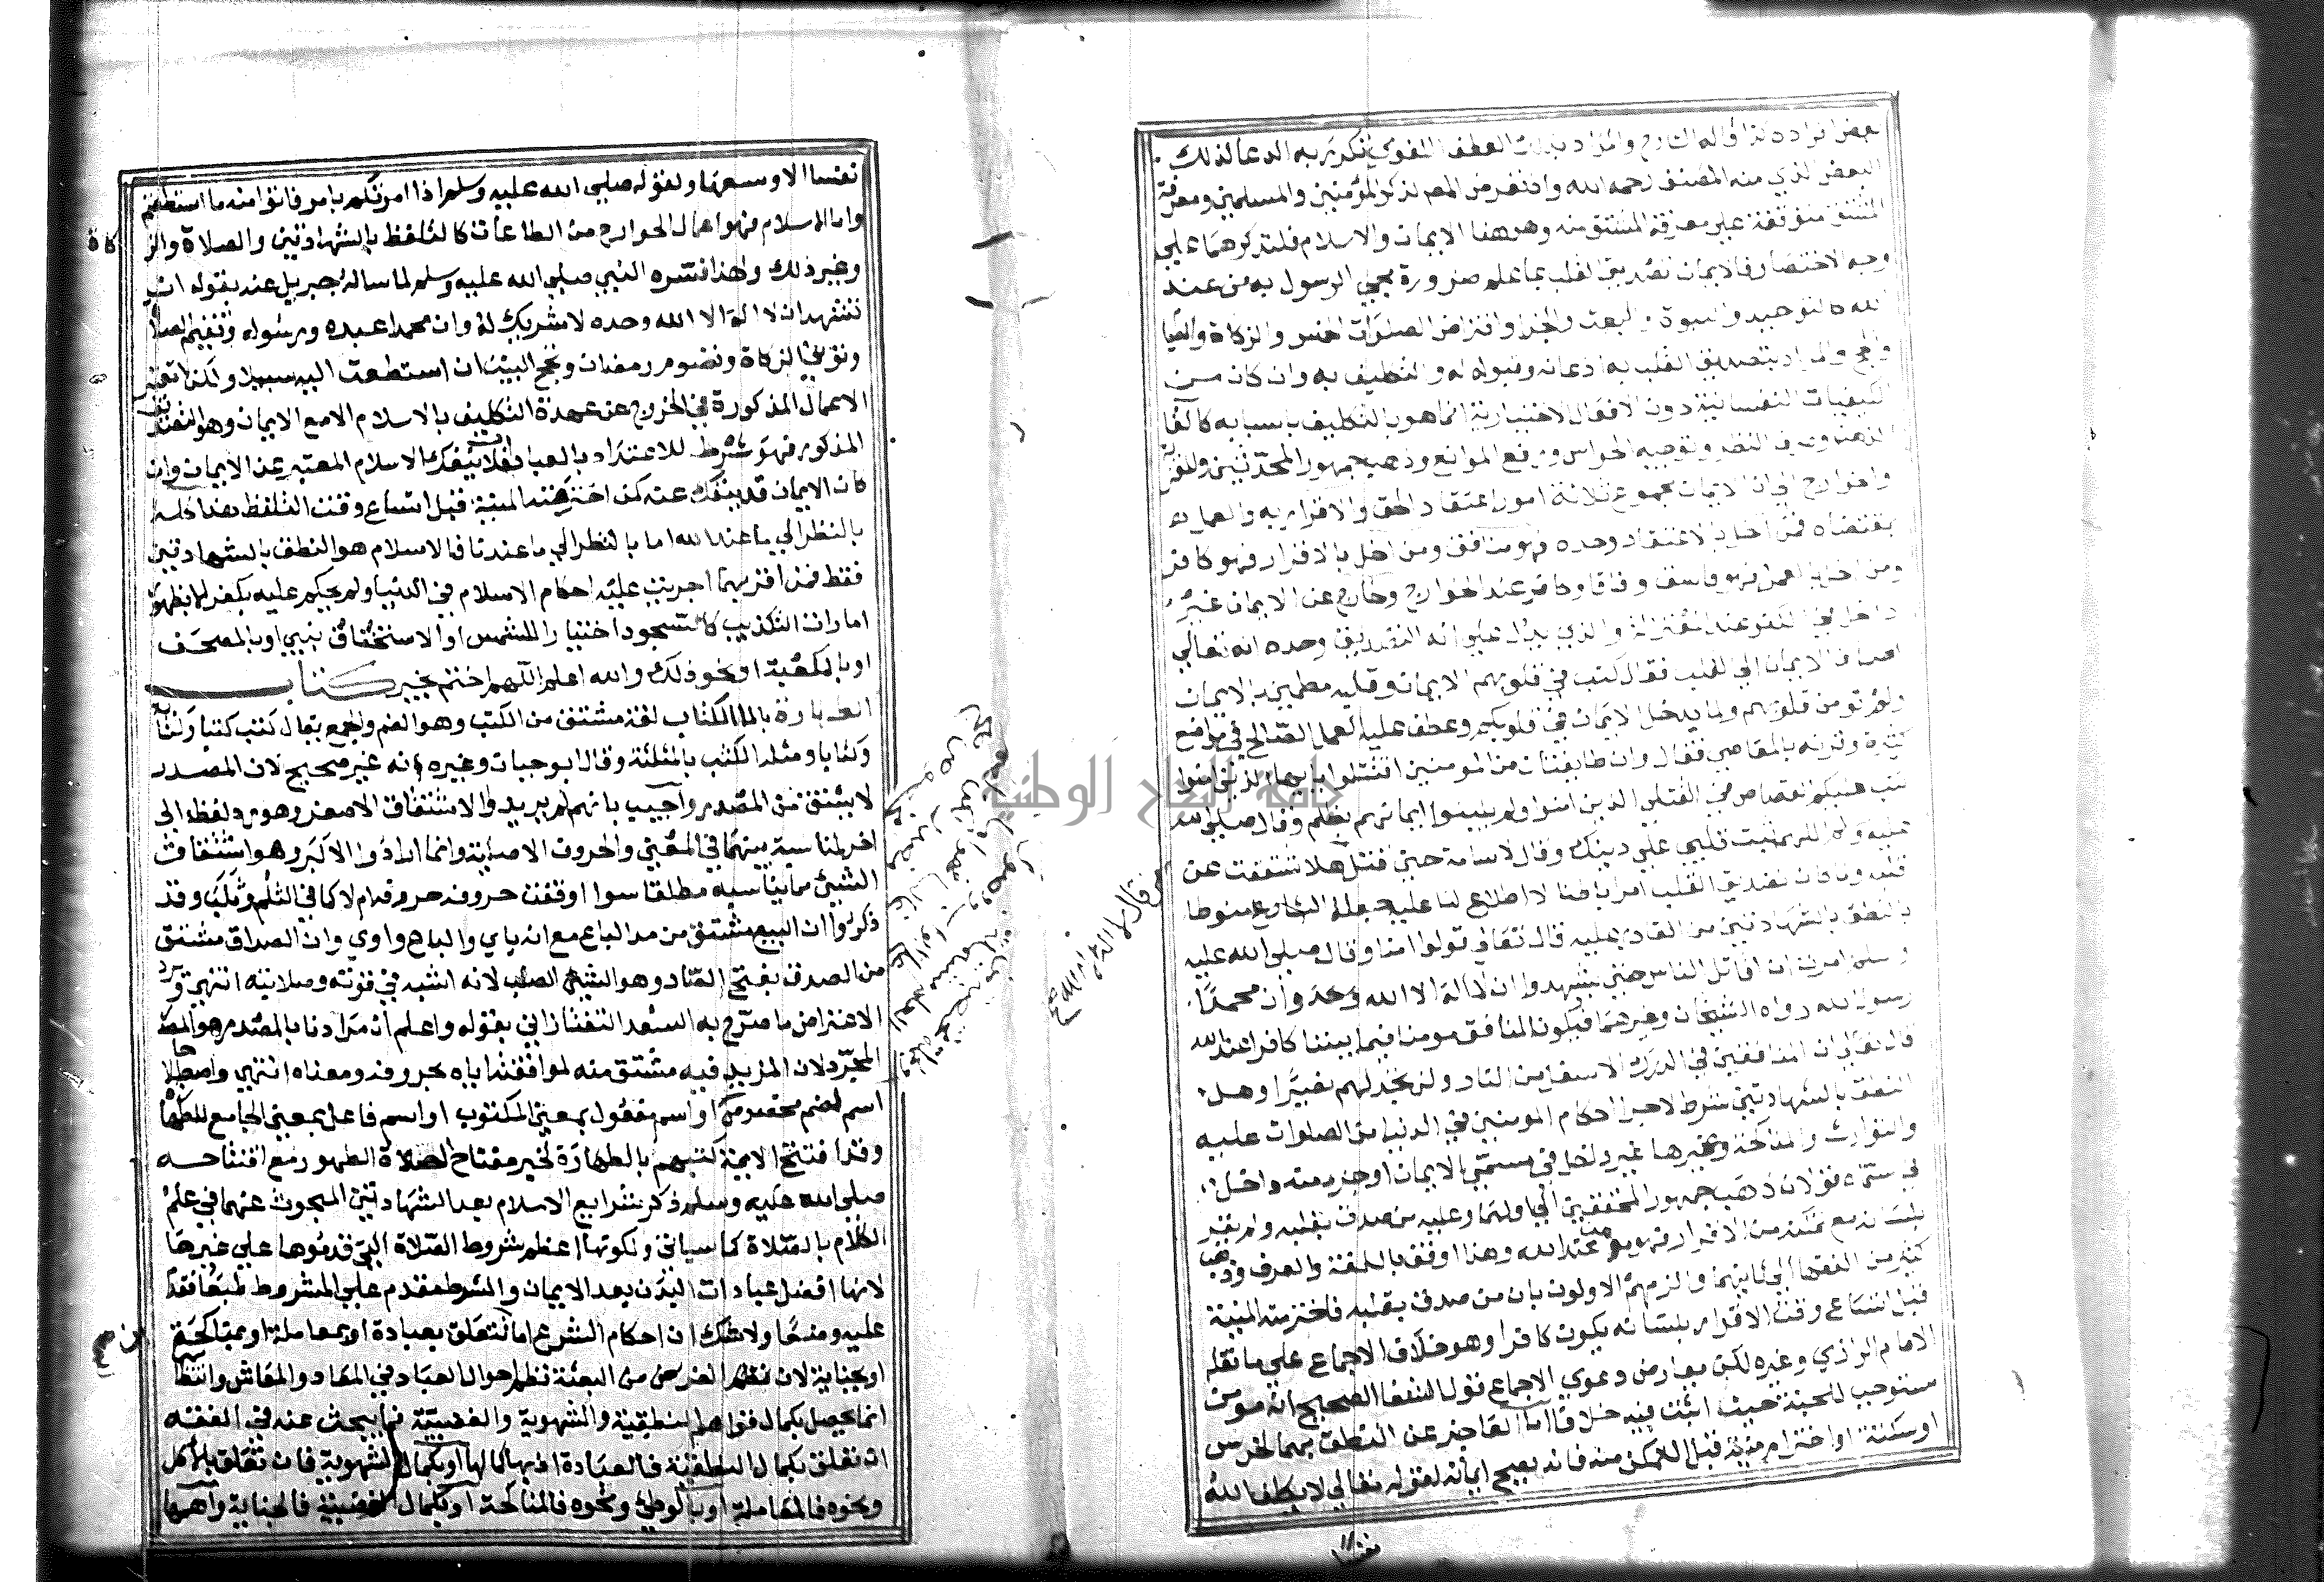 بعض افراده كذا قاله الشارح والمراد بذلك العطف اللغوي فتكريره الدعا لذلك
البعض الذي منه المصنف رحمه الله وان تعرض المصـ لذكر المؤمنين والمسلمين ومعرفة
المشتق متوقفة علي معرفة المشتق منه وهو هنا الايمان والاسلام فلنذكرهما علي
وجه الاختصار فالايمان تصديق القلب بما علم ضرورة مجي الرسول به من عند
الله كالتوحيد والنبوة والبعث والجزا وافتراض الصلوات الخمس والزكاة والصيا
والحج والمراد بتصديق القلب به اذعانه وقبوله له والتكليف به وان كان من
الكيفيات النفسانية دون الافعال الاختيارية انما هو بالتكليف باسبابه كالقا
الذهن وصرف النظر وتوجيه الحواس ورفع الموانع وذهب جمهور المحدثين والمعتزلة
والخوارج الي ان الايمان مجموع ثلاثة امور اعتقاد الحق والاقرار به والعمل
بمقتضاه فمن اخل بالاعتقاد وحده فهو منافق ومن اخل بالاقرار فهو كافر
ومن اخل بالعمل فهو فاسق وفاقا وكافر عند الخوارج وخارج عن الايمان غير
داخل في الكفر عند المعتزلة والذي يدل علي انه التصديق وحده انه تعالي
اضاف الايمان الي القلب فقال كتب في قلوبهم الايمان وقلبه مطمين بالايمان
ولم تومن قلوبهم ولما يدخل الايمان في قلوبكم وعطف عليه العمل الصالح في مواضع
كثيرة وقرنه بالمعاصي فقال وان طايفتان من المومنين اقتتلوا يا ايها الذين امنوا
كتب عليكم القصاص في القتلي الذين امنوا ولم يلبسوا ايمانهم بظلم وقال صلي الله
عليه وسلم اللهم ثبت قلبي علي دينك وقال لاسامة حين قتل هلا شققت عن
من قال لا اله الا الله صح
قلبه ولما كان تصديق القلب امرا باطنا لا اطلاع لنا عليه جعله الشارع منوطا
بالنطق بالشهادتين من القادر عليه قال تعالي قولوا امنا وقال صلي الله عليه
وسلم امرت ان اقاتل الناس حتي يشهدوا ان لا اله الا الله وحده وان محمدا
رسول الله رواه الشيخان وغيرهما فيكون المنافق مومنا فيما بيننا كافرا عند الله
قال تعالي ان المنافقين في الدرك الاسفل من النار ولن تجد لهم نصيرا وهل
النطق بالشهادتين شرط لاجرا احكام المومنين في الدنيا من الصلوات عليه
والتوارث والمناكحة وغيرها غير داخل في مسمي الايمان او جزء منه داخل
في مسماه قولان ذهب جمهور المحققين الي اولهما وعليه من صدق بقلبه ولم يقر
بلسانه مع تمكنه من الاقرار فهو مومن عند الله وهذا اوفق باللغة والعرف وذهب
كثير من الفقها الي ثانيهما والزمهم الاولون بان من صدق بقلبه فاخترمته المنية
قبل اتساع وقت الاقرار بلسانه يكون كافرا وهو خلاف الاجماع علي ما نقله
الامام الرازي وغيره لكن يعارض دعوي الاجماع قول الشفا الصحيح انه مومن
مستوجب للجنة حيث اثبت فيه خلافا اما العاجز عن النطق بهما لخرس
او سكتة او اخترام منية قبل التمكن منه فانه يصح ايمانه لقوله تعالي لا يكلف الله
نفسا
نفسا الا وسعها ولقوله صلي الله عليه وسلم اذا امرتكم بامر فاتوا منه ما استطعتم
واما الاسلام فهو اعمال الجوارح من الطاعات كالتلفظ بالشهادتين والصلاة والز كاة
وغير ذلك ولهذا فسره النبي صلي الله عليه وسلم لما ساله جبريل عنه بقوله ان
تشهد ان لا اله الا الله وحده لا شريك له وان محمدا عبده ورسوله وتقيم الصلاة
وتوتي الزكاة وتصوم رمضان وتحج البيت ان استطعت اليه سبيلا ولكن لا تعتبر
الاعمال المذكورة في الخروج عن عهدة التكليف بالاسلام الا مع الايمان وهو التصديق
المذكور فهو شرط للاعتداد بالعبادات فلا ينفك الاسلام المعتبر عن الايمان وان
كان الايمان قد ينفك عنه كمن اخترمته المنية قبل اتساع وقت التلفظ هذا كله
بالنظر الي ما عند الله اما بالنظر الي ما عندنا فالاسلام هو النطق بالشهادتين
فقط فمن اقر بهما اجريت عليه احكام الاسلام في الدنيا ولم يحكم عليه بكفر الا بظهور
امارات التكذيب كالسجود اختيارا للشمس او الاستخفاف بنبي او بالمصحف
او بالكعبة او نحو ذلك والله اعلم اللهم اختم بخير كتاب
الطهارة بالما الكتاب لغة مشتق من الكتب وهو الضم والجمع يقال كتب كتبا وكتابة
وكتابا ومثله الكثب بالمثلثة وقال ابو حيان وغيره انه غير صحيح لان المصدر
لا يشتق من المصدر واجيب بانهم لم يريدوا الاشتقاق الاصغر وهو رد لفظ الي
اخر لمناسبة بينهما في المعني والحروف الاصلية وانما ارادوا الاكبر وهو اشتقاق
الشيئ مما يناسبه مطلقا سوا اوفقت حروفه حروفه ام لا كما في الثلم وثلب وقد
ذكروا ان البيع مشتق من مد الباع مع انه ياي والباع واوي وان الصداق مشتق
من الصدق بفتح الصاد وهو الشيئ الصلب لانه اشبه في قوته وصلابته انتهي ورد
الاعتراض ما صرح به السعد التفتازاني بقوله واعلم ان مرادنا بالمصدر هو المصدر
المجرد لان المزيد فيه مشتق منه لموافقته اياه بحروفه ومعناه انتهي واصطلاحا
اسم لضم مخصوص او اسم مفعول بمعني المكتوب او اسم فاعل بمعني الجامع للطهارة
وقد افتتح الايمة كتبهم بالطهارة لخبر مفتاح الصلاة الطهور مع افتتاحه
صلي الله عليه وسلم ذكر شرايع الاسلام بعد الشهادتين المبحوث عنهما في علم
الكلام بالصلاة كما سياتي ولكونها اعظم شروط الصلاة التي قدموها علي غيرها
لانها افضل عبادات البدن بعد الايمان والشرط مقدم علي المشروط طبعا فقدم
عليه وضعا ولا شك ان احكام الشرع اما تتعلق بعبادة او بمعاملة او بمناكحة
او بجناية لان الغرض من البعثة نظم احوال العباد في المعاد والمعاش وانتظا
انما يحصل بكمال قواهم النطقية والشهوية والغضبية فما يبحث عنه في الفقه
ان تعلق بكمال النطقية فالعبادة اذ بها كمالها او بكمال الشهوية فان تعلق بالاكل
ونحوه فالمعاملة او بالوطئ ونحوه فالمناكحة او بكمال الغضبية فالجناية واهمها
جامعة النجاح الوطنية